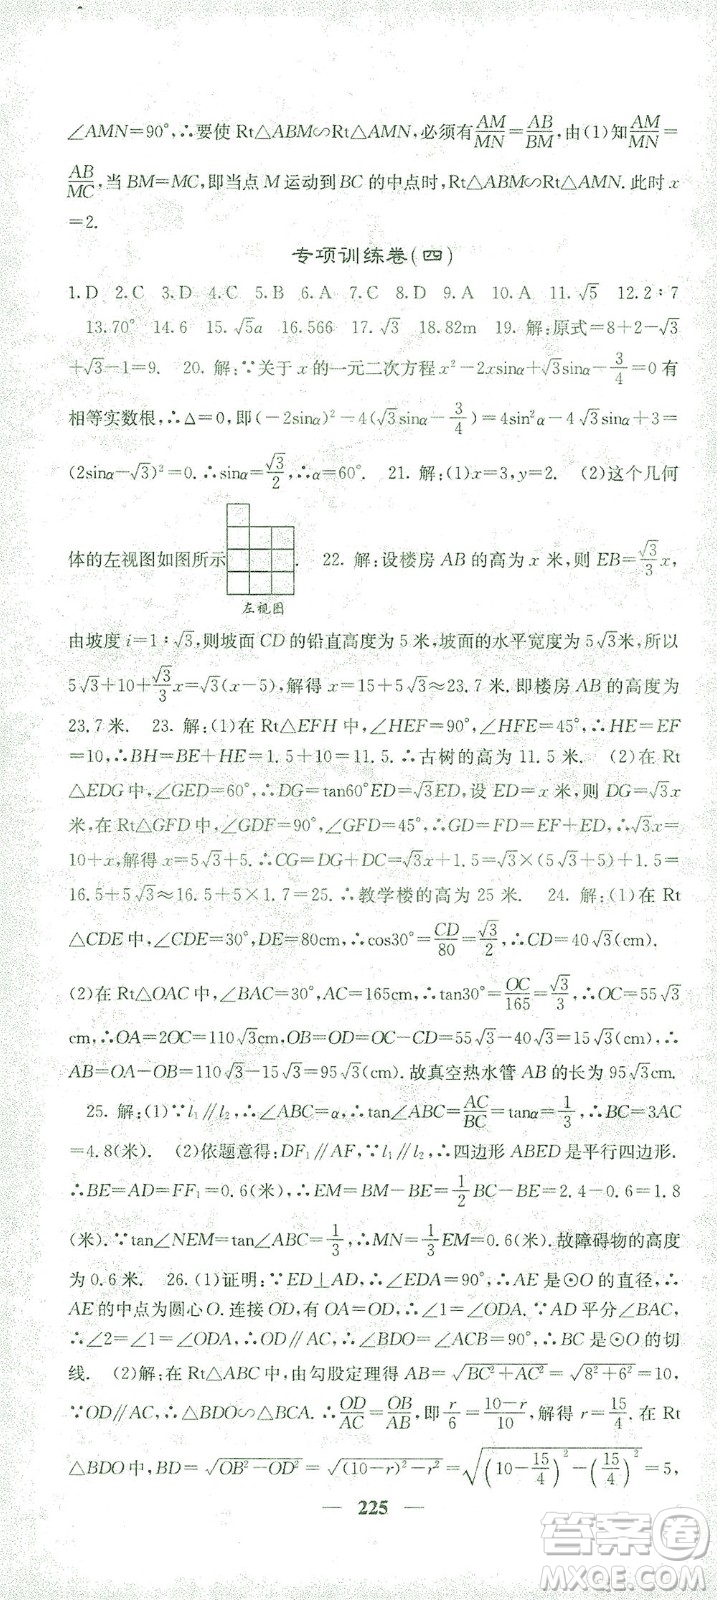 ∠AMN=90°,∴要使 Rt△ABM∽Rt△AMN,必须有AM/MN=AB/BM,由(1)知AM/MN=
AB/MC,当 BM=MC,即当点 M 运动到 BC 的中点时,Rt△ABM∽Rt△AMN.此时 x
=2.
专项训练卷(四)
1.D 2.C 3.D 4.C 5.B 6.A 7.C 8.D 9.A 10.A 11.√5 12.2∶7
13.70° 14.6 15.√5a 16.566 17.√3 18.82m 19.解:原式=8+2-√3
+√3-1=9. 20.解:∵关于 x 的一元二次方程 x²-2sinα+√3sinα-3/4=0 有
相等实数根,∴Δ=0,即(-2sinα)²-4(√3sinα-3/4)=4sin²α-4√3sinα+3=
(2sinα-√3)²=0.∴sinα=√3/2,∴α=60°. 21.解:(1)x=3,y=2. (2)这个几何
体的左视图如图所示. 22.解:设楼房 AB 的高为 x 米,则 EB=√3/3x,
左视图
由坡度 i=1∶√3,则坡面 CD 的铅直高度为 5 米,坡面的水平宽度为 5√3米,所以
5√3+10+√3/3x=√3(x-5),解得 x=15+5√3≈23.7 米.即楼房 AB 的高度为
23.7 米. 23.解:(1)在 Rt△EFH 中,∠HEF=90°,∠HFE=45°,∴HE=EF
=10,∴BH=BE+HE=1.5+10=11.5.∴古树的高为 11.5 米. (2)在 Rt
△EDG 中,∠GED=60°,∴DG=tan60°ED=√3ED,设 ED=x 米,则 DG=√3x
米.在 Rt△GFD 中,∠GDF=90°,∠GFD=45°,∴GD=FD=EF+ED,∴√3x=
10+x,解得 x=5√3+5.∴CG=DG+DC=√3x+1.5=√3(5√3+5)+1.5=
16.5+5√3≈16.5+5×1.7=25.∴教学楼的高为 25 米. 24.解:(1)在 Rt
△CDE 中,∠CDE=30°,DE=80cm,∴cos30°=CD/80=√3/2,∴CD=40√3(cm).
(2)在 Rt△OAC 中,∠BAC=30°,AC=165cm,∴tan30°=OC/165=√3/3,∴OC=55√3
cm,∴OA=2OC=110√3cm,OB=OD=OC-CD=55√3-40√3=15√3(cm),∴
AB=OA-OB=110√3-15√3=95√3(cm).故真空热水管 AB 的长为 95√3cm.
25.解:(1)∵l₁∥l₂,∴∠ABC=α,∴tan∠ABC=tanα=AC/BC=1/3,∴BC=3AC
=4.8(米). (2)依题意得:DF₁∥AF,∵l₁∥l₂,∴四边形 ABED 是平行四边形.
∴BE=AD=FF₁=0.6(米),∴EM=BM-BE=1/2BC-BE=2.4-0.6=1.8
(米).∵tan∠NEM=tanα=1/3,∴MN=1/3EM=0.6(米).故障碍物的高度
为 0.6 米. 26.(1)证明:∵ED⊥AD,∴∠EDA=90°,∴AE 是⊙O 的直径,∴
AE 的中点为圆心 O.连接 OD,有 OA=OD,∴∠1=∠ODA.∵AD 平分∠BAC,
∴∠2=∠1=∠ODA,∴OD∥AC,∴∠BDO=∠BCA=90°,∴BC 是⊙O 的切
线. (2)解:在 Rt△ABC 中,由勾股定理得 AB=√(BC²+AC²)=√(8²+6²)=10,
∵OD∥AC,∴△BDO∽△BCA.∴OD/AC=OB/AB,即r/6=(10-r)/10,解得 r=15/4.在 Rt
△BDO 中,BD=√(OB²-OD²)=√((10-r)²-r²)=√((10-15/4)²-(15/4)²)=5,
225
答案圈
MXQE.COM